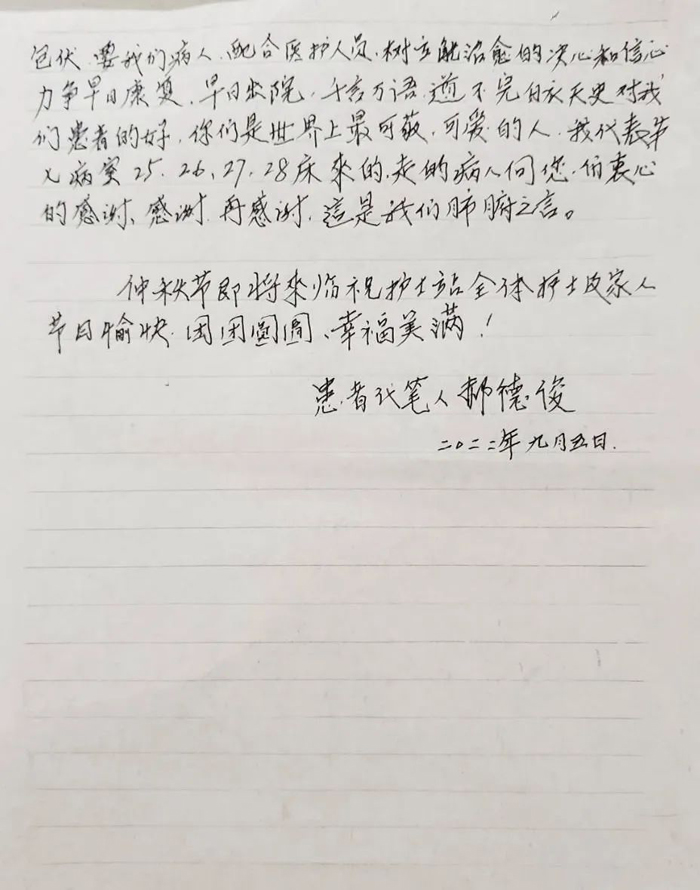 包伏、要我们病人、配合医护人员、树立能治愈的决心和信心
力争早日康复、早日出院，千言万语，道不完白衣天史对我
们患者的好，你们是世界上最可敬，可爱的人，我代表第
七病室25、26、27、28床來的、走的病人向您们衷心
的感谢、感谢、再感谢，這是我们肺腑之言。
仲秋节即将來临祝护士站全体护士及家人
节日愉快、团团圆圆、幸福美满！
患者代笔人郝德俊
二〇二二年九月五日.